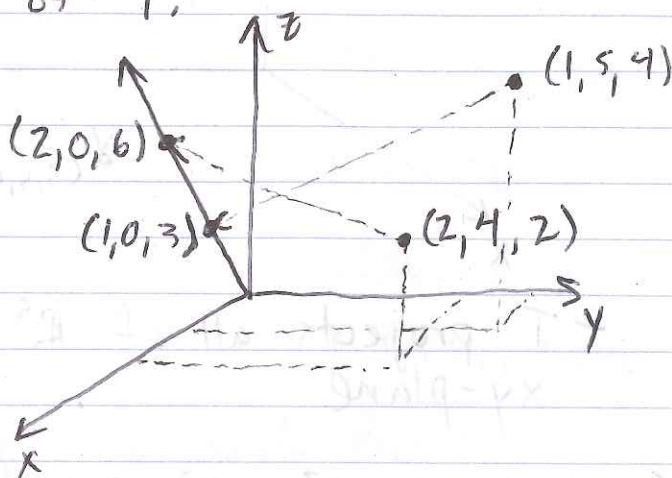 z
(1,5,4)
(2,0,6)
(1,0,3)
(2,4,2)
y
x